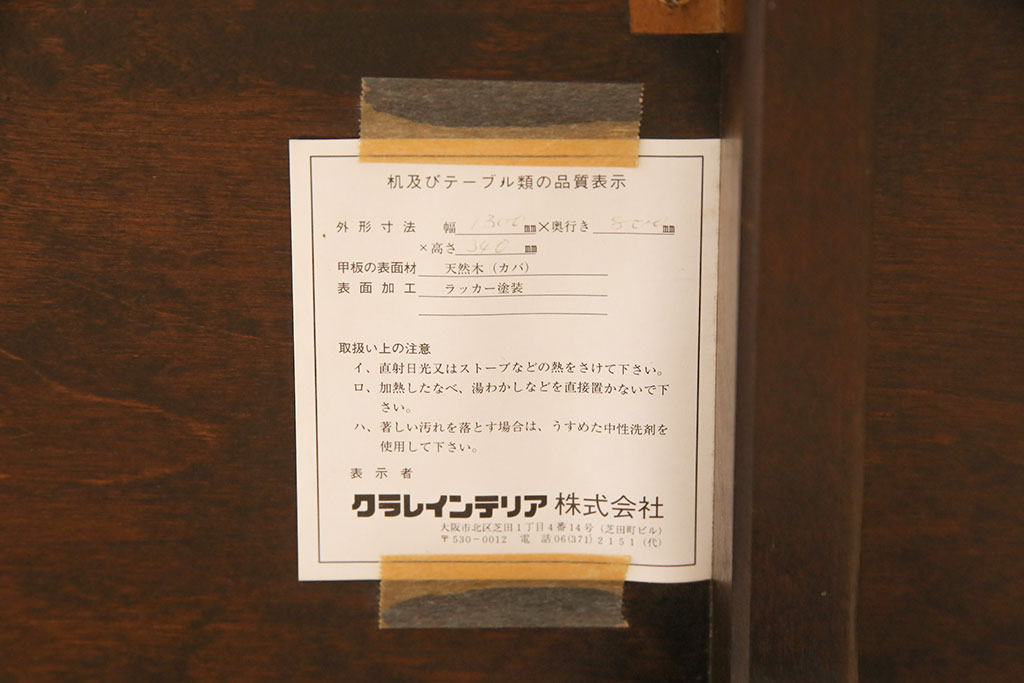 机及びテーブル類の品質表示
外形寸法 幅 1300 ㎜×奥行き 800 ㎜
×高さ 340 ㎜
甲板の表面材 天然木（カバ）
表面加工 ラッカー塗装
取扱い上の注意
イ、直射日光又はストーブなどの熱をさけて下さい。
ロ、加熱したなべ、湯わかしなどを直接置かないで下
さい。
ハ、著しい汚れを落とす場合は、うすめた中性洗剤を
使用して下さい。
表示者
クラレインテリア株式会社
大阪市北区芝田1丁目4番14号（芝田町ビル）
〒530-0012 電話06(371)2151（代）